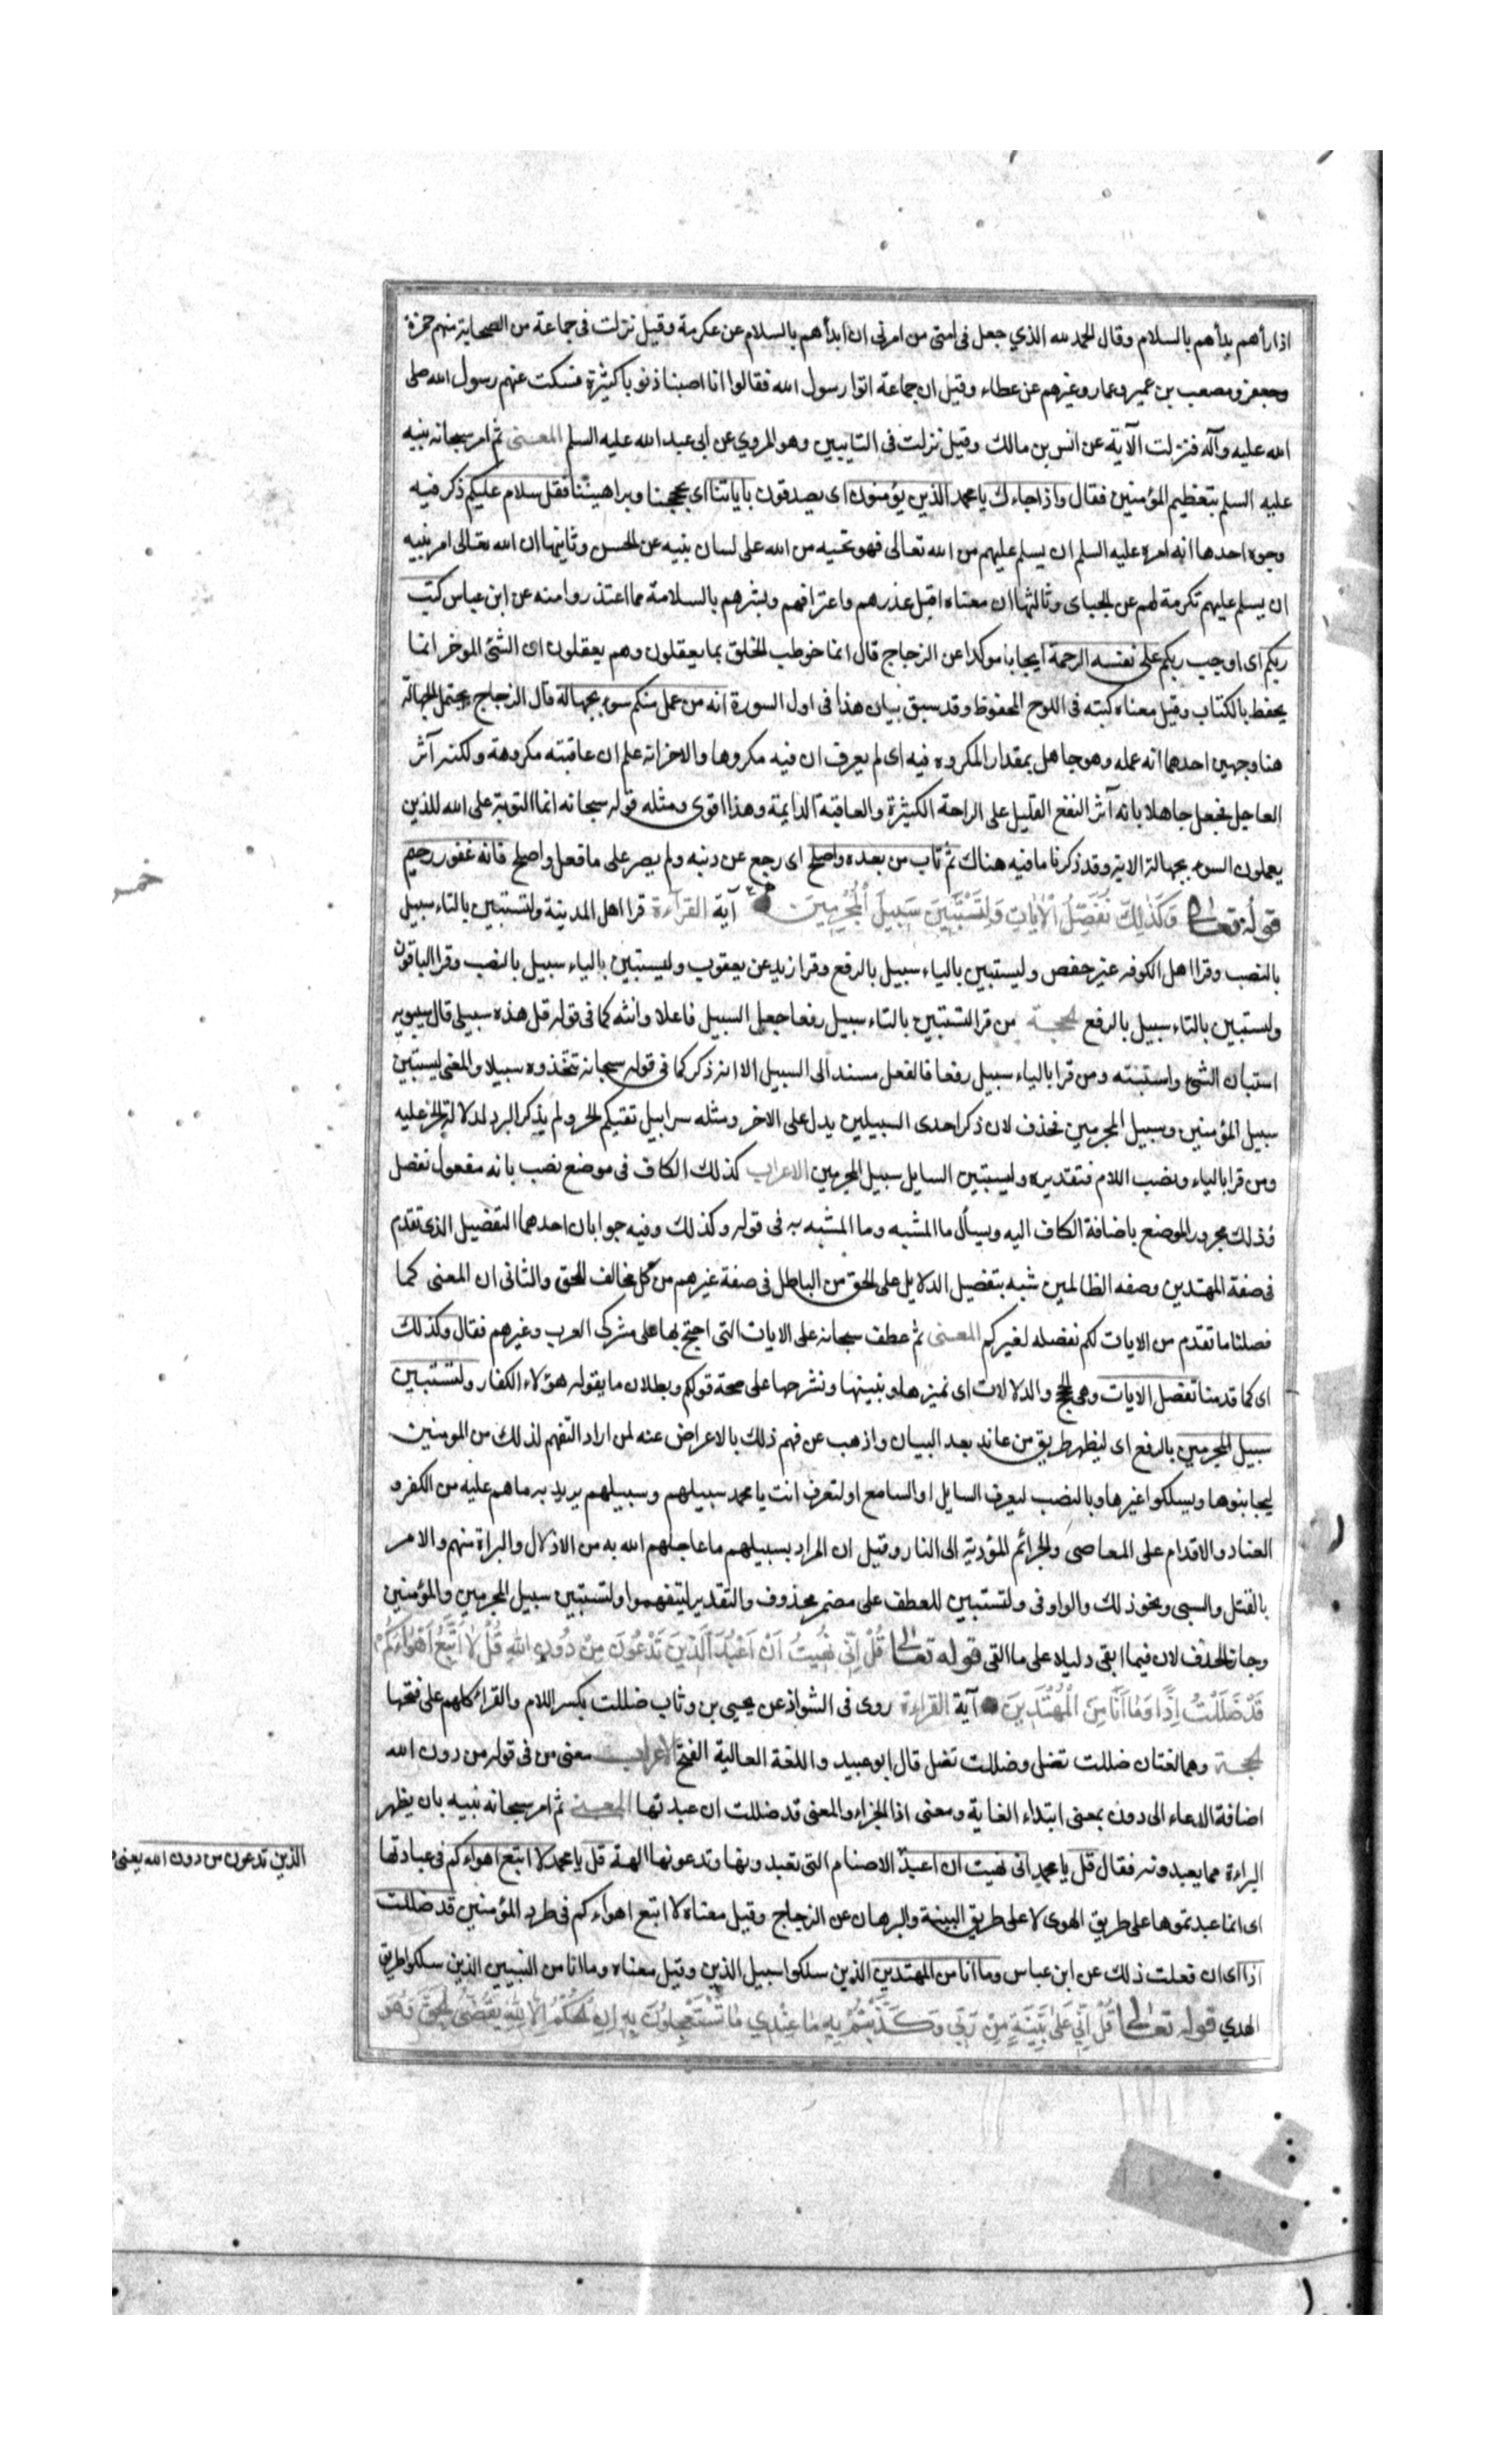 اذا رأهم بدأهم بالسلام وقال الحمد لله الذي جعل فى امتى من امرنى ان ابدأهم بالسلام عن عكرمة وقيل نزلت فى جماعة من الصحابة منهم حمزة
وجعفر ومصعب بن عمير وعمار وغيرهم عن عطاء وقيل ان جماعة اتوا رسول الله فقالوا انا اصبنا ذنوبا كثيرة فسكت عنهم رسول الله صلى
الله عليه وآله فنزلت الآية عن انس بن مالك وقيل نزلت فى التايبين وهو المروي عن ابى عبد الله عليه السلم المعنى ثم امر سبحانه نبيه
عليه السلم بتعظيم المؤمنين فقال واذا جاءك يا محمد الذين يؤمنون اى يصدقون بآياتنا اى بحججنا وبراهيننا فقل سلام عليكم ذكر فيه
وجوه احدها انه امره عليه السلم ان يسلم عليهم من الله تعالى فهو تحيه من الله على لسان نبيه عن الحسن وثانيها ان الله تعالى امر نبيه
ان يسلم عليهم تكرمة لهم عن الجباى وثالثها ان معناه اقبل عذرهم واعترافهم وبشرهم بالسلامة مما اعتذروا منه عن ابن عباس كتب
ربكم اى اوجب ربكم على نفسه الرحمة ايجابا موكدا عن الزجاج قال انما خوطب الخلق بما يعقلون وهم يعقلون اى الشئ الموخر انما
يحفظ بالكتاب وقيل معناه كتبه فى اللوح المحفوظ وقد سبق بيان هذا فى اول السورة انه من عمل منكم سوء بجهالة قال الزجاج يحتمل الجهالة
هنا وجهين احدهما انه عمله وهو جاهل بمقدار المكروه فيه اى لم يعرف ان فيه مكروها والاخر انه علم ان عاقبته مكروهة ولكنه آثر
العاجل فجعل جاهلا بانه آثر النفع القليل على الراحة الكثيرة والعاقبة الدايمة وهذا اقوى ومثله قوله سبحانه انما التوبة على الله للذين
يعملون السوء بجهالة الاية وقد ذكرنا ما فيه هناك ثم تاب من بعده واصلح اى رجع عن ذنبه ولم يصر على ما فعل واصلح فانه غفور رحيم
قوله تعالى وَكَذٰلِكَ نُفَصِّلُ الْاٰيَاتِ وَلِتَسْتَبِينَ سَبِيلَ الْمُجْرِمِينَ آية القراءة قرا اهل المدينة ولتستبين بالتاء سبيل
بالنصب وقرا اهل الكوفه غير حفص وليستبين بالياء سبيل بالرفع وقرا زيد عن يعقوب وليستبين بالياء سبيل بالنصب وقرا الباقون
ولتستبين بالتاء سبيل بالرفع الحجة من قرا لتستبين بالتاء سبيل رفعا جعل السبيل فاعلا وانثه كما فى قوله قل هذه سبيلى قال سيبويه
استبان الشئ واستبنته ومن قرا بالياء سبيل رفعا فالفعل مسند الى السبيل الا انه ذكر كما فى قوله سبحانه يتخذوه سبيلا والمعنى ليستبين
سبيل المؤمنين وسبيل المجرمين فحذف لان ذكر احدى السبيلين يدل على الاخر ومثله سرابيل تقيكم الحر ولم يذكر البرد لدلالة الحر عليه
ومن قرا بالياء ونصب اللام فتقديره وليستبين السايل سبيل المجرمين الاعراب كذلك الكاف فى موضع نصب بانه مفعول نفصل
وذلك مجرور الموضع باضافة الكاف اليه ويسأل ما المشبه وما المشبه به فى قوله وكذلك وفيه جوابان احدهما التفصيل الذى تقدم
فى صفة المهتدين وصفه الظالمين شبه بتفصيل الدلايل على الحق من الباطل فى صفة غيرهم من كل مخالف للحق والثانى ان المعنى كما
فصلنا ما تقدم من الايات لكم نفصله لغيركم المعنى ثم عطف سبحانه على الايات التى احتج بها على مشركى العرب وغيرهم فقال وكذلك
اى كما قدمنا نفصل الايات وهى الحجج والدلالات اى نميزها ونبينها ونشرحها على صحة قولكم وبطلان ما يقوله هؤلاء الكفار ولتستبين
سبيل المجرمين بالرفع اى ليظهر طريق من عاند بعد البيان واذهب عن فهم ذلك بالاعراض عنه لمن اراد التفهم لذلك من المومنين
ليجانبوها ويسلكوا غيرها وبالنصب ليعرف السايل او السامع او لتعرف انت يا محمد سبيلهم وسبيلهم يريد به ما هم عليه من الكفر و
العناد والاقدام على المعاصى والجرائم المؤدية الى النار وقيل ان المراد بسبيلهم ما عاجلهم الله به من الاذلال والبراة منهم والامر
بالقتل والسبى ونحو ذلك والواو فى ولتستبين للعطف على مضمر محذوف والتقدير ليتفهموا ولتستبين سبيل المجرمين والمؤمنين
وجاز الحذف لان فيما ابقى دليلا على ما القى قوله تعالى قُلْ اِنِّى نُهِيتُ اَنْ اَعْبُدَ الَّذِينَ تَدْعُونَ مِنْ دُونِ اللّٰهِ قُلْ لَا اَتَّبِعُ اَهْوَاءَكُمْ
قَدْ ضَلَلْتُ اِذًا وَمَا اَنَا مِنَ الْمُهْتَدِينَ آية القراءة روى فى الشواذ عن يحيى بن وثاب ضللت بكسر اللام والقراء كلهم على فتحها
الحجة وهما لغتان ضللت تضل وضللت تضل قال ابو عبيد واللغة العالية الفتح الاعراب معنى من فى قوله من دون الله
اضافة الدعاء الى دون بمعنى ابتداء الغاية ومعنى اذا الجزاء والمعنى قد ضللت ان عبدتها المعنى ثم امر سبحانه نبيه بان يظهر
البراءة مما يعبدونه فقال قل يا محمد انى نهيت ان اعبد الاصنام التى تعبدونها وتدعونها الهة قل يا محمد لا اتبع اهواءكم فى عبادتها
الذين تدعون من دون الله يعنى
اى انما عبدتموها على طريق الهوى لا على طريق البينة والبرهان عن الزجاج وقيل معناه لا اتبع اهواءكم فى طرد المؤمنين قد ضللت
اذا اى ان فعلت ذلك عن ابن عباس وما انا من المهتدين الذين سلكوا سبيل الذين وقيل معناه وما انا من النبيين الذين سلكوا طريق
الهدي قوله تعالى قُلْ اِنِّى عَلٰى بَيِّنَةٍ مِنْ رَبِّى وَكَذَّبْتُمْ بِهِ مَا عِنْدِي مَا تَسْتَعْجِلُونَ بِهِ اِنِ الْحُكْمُ اِلَّا لِلّٰهِ يَقْضِى الْحَقَّ وَهُوَ